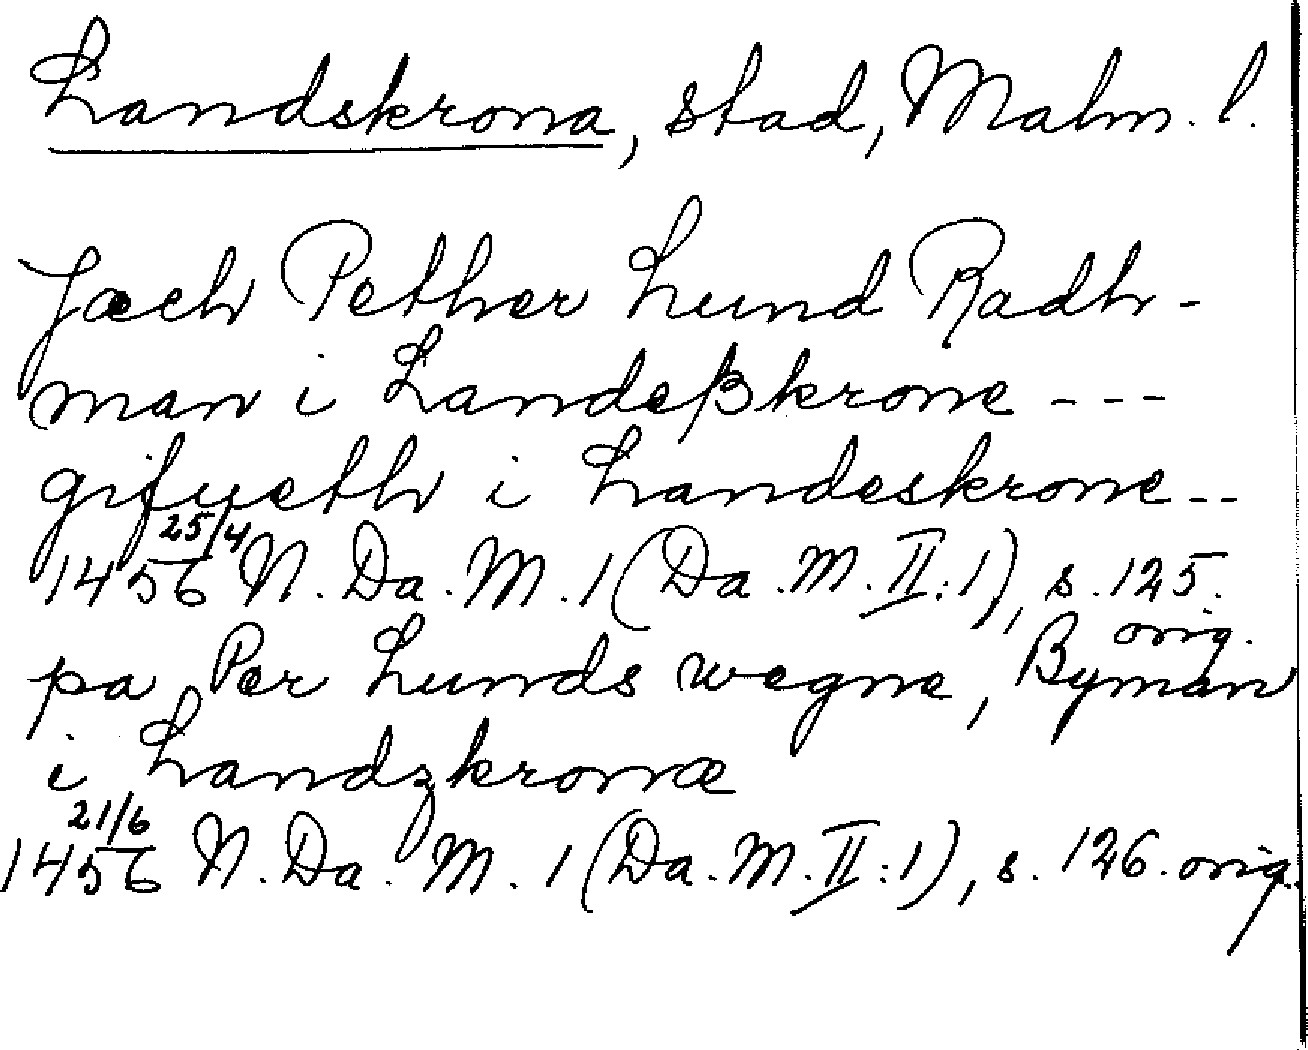 Landskrona, stad, Malm. l.
Jæch Pether Lund Radh-
man i Landeßkrone ---
gifueth i Landeskrone --
25/4
1456 N. Da. M. 1 (Da. M. II:1), s. 125.
orig.
pa Per Lunds wegne, Byman
i Landzkronæ
21/6
1456 N. Da. M. 1 (Da. M. II:1), s. 126. orig.